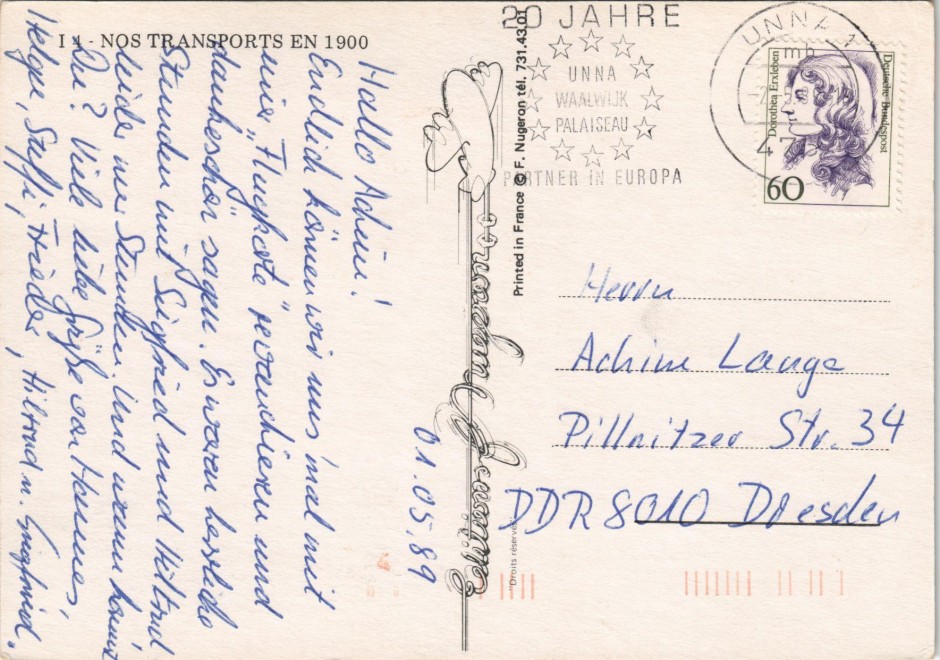 I 4 - NOS TRANSPORTS EN 1900
Hallo Achim!
Endlich können wir uns mal mit
einer "Flugkarte" revanchieren und
dankeschön sagen. Es waren herrliche
Stunden mit Siegfried und Hiltrud
leider nur Stunden. Und wann kommst
Du? Viele liebe Grüße von Hannes,
Helga, Steffi, Frieder, Hiltrud u. Siegfried.
01.05.89
Printed in France © F. Nugeron tél. 731.43.01
"Droits réservés"
20 JAHRE
UNNA
WAALWIJK
PALAISEAU
PARTNER IN EUROPA
UNNA 1
mb
Dorothea Erxleben
Deutsche Bundespost
60
Herrn
Achim Lange
Pillnitzer Str. 34
DDR 8010 Dresden